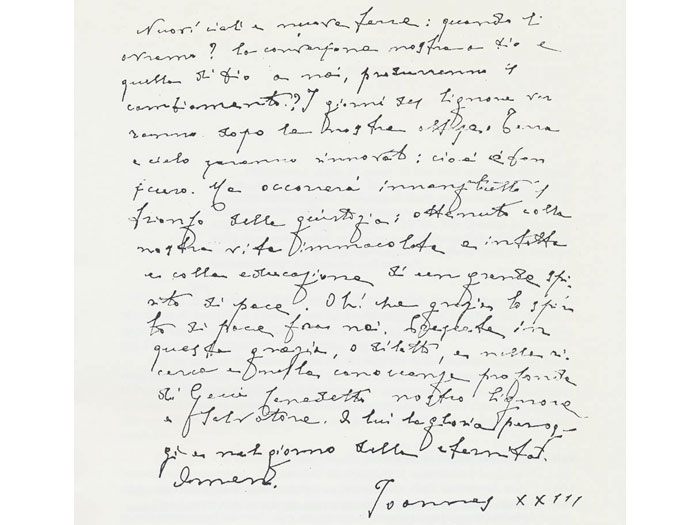 Nuovi cieli e nuova terra: quando li
avremo? La conversione nostra a Dio e
quella di Dio a noi, produrranno il
cambiamento? I giorni del Signore ver
ranno dopo la nostra attesa. Terra
e cielo saranno rinnovati: ciò è
sicuro. Ma occorrerà innanzitutto il
trionfo della giustizia: ottenuto colla
nostra vita immacolata e intatta
e colla educazione di un grande spi
rito di pace. Oh! che grazia lo spiri
to di pace fra noi. Crescete in
questa grazia, o diletti, e nella ri
cerca e nella conoscenza profonda
di Gesù benedetto nostro Signore
e Salvatore. A lui la gloria per og-
gi e nel giorno della eternità.
Amen.
Joannes XXIII